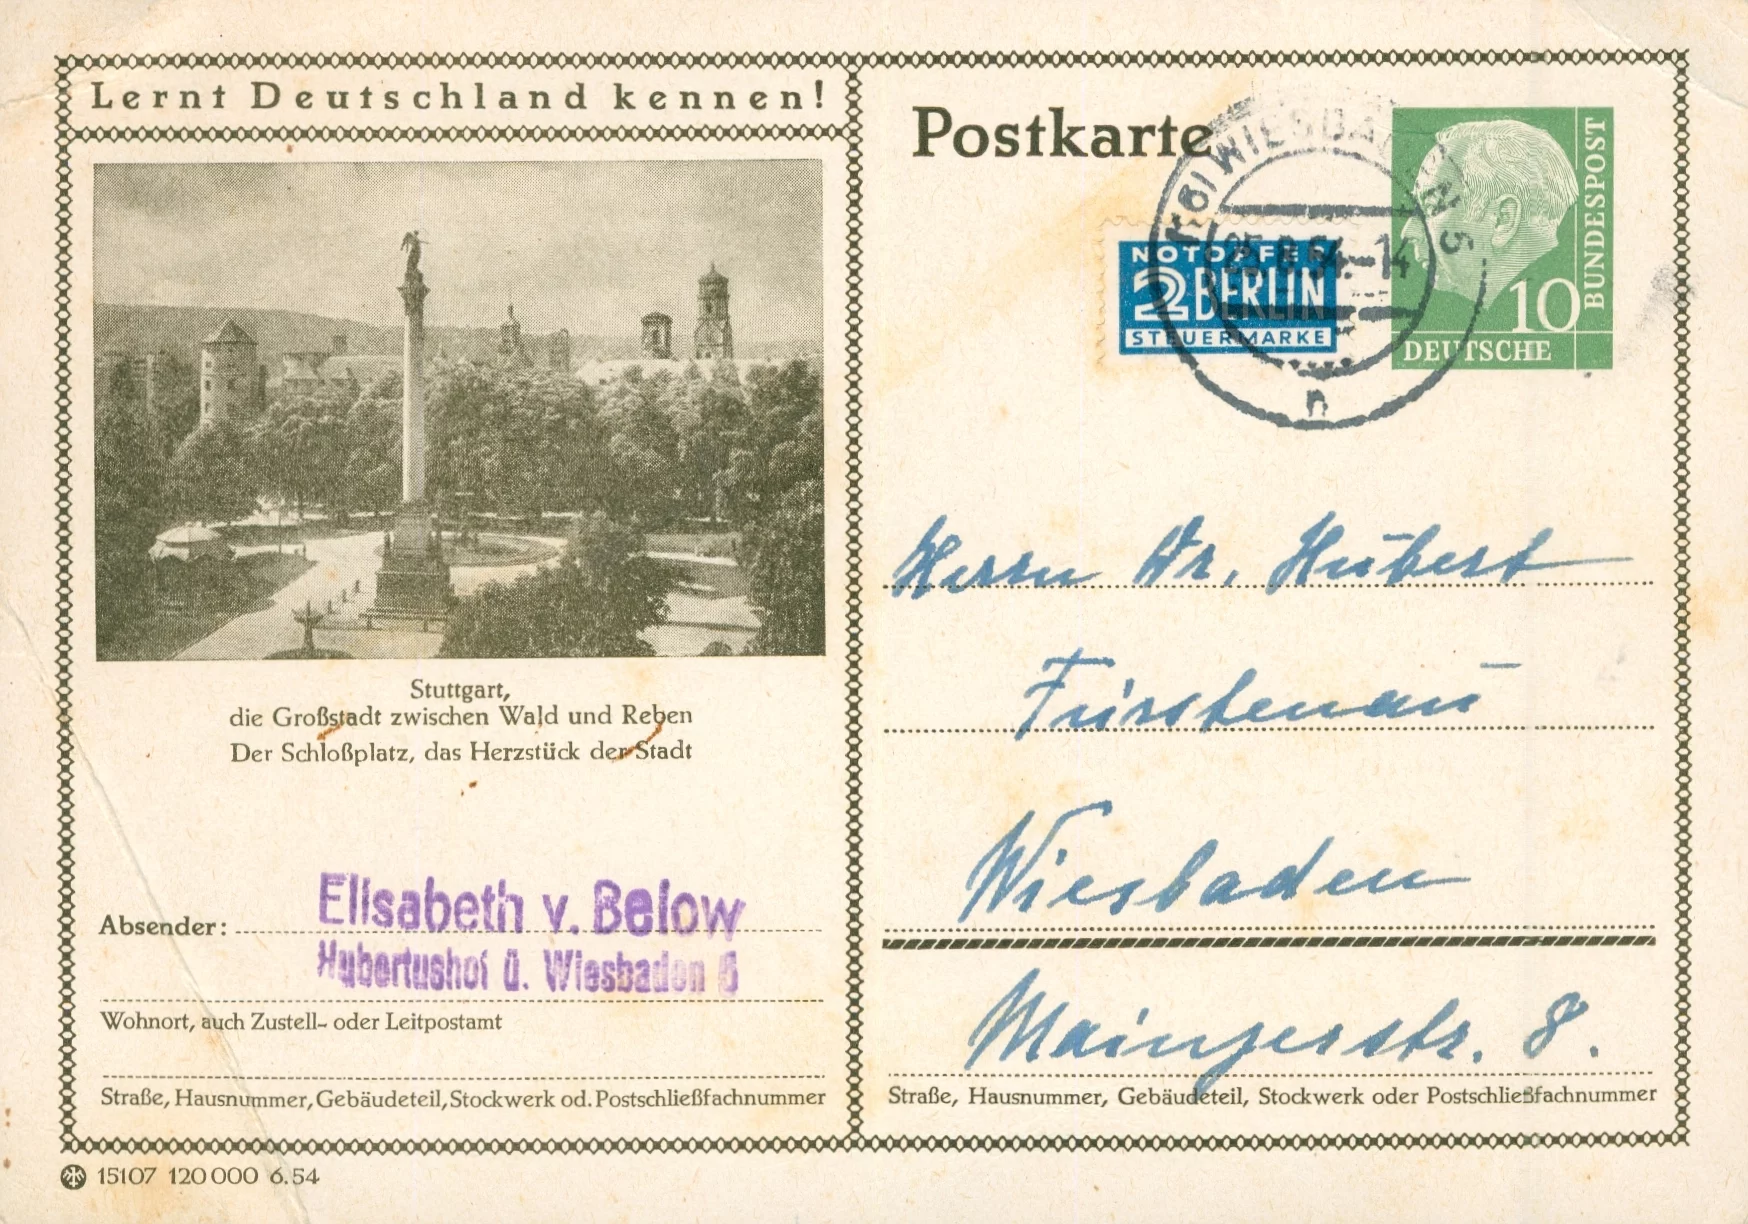 Lernt Deutschland kennen!
Stuttgart,
die Großstadt zwischen Wald und Reben
Der Schloßplatz, das Herzstück der Stadt
Absender:
Elisabeth v. Below
Hubertushof ü. Wiesbaden 6
Wohnort, auch Zustell- oder Leitpostamt
Straße, Hausnummer, Gebäudeteil, Stockwerk od. Postschließfachnummer
15107 120 000 6.54
Postkarte
(16) WIESBADEN 5
54.-14
n
NOTOPFER
2 BERLIN
STEUERMARKE
BUNDESPOST
10
DEUTSCHE
Herrn Dr. Hubert
Fürstenau
Wiesbaden
Mainzerstr. 8.
Straße, Hausnummer, Gebäudeteil, Stockwerk oder Postschließfachnummer